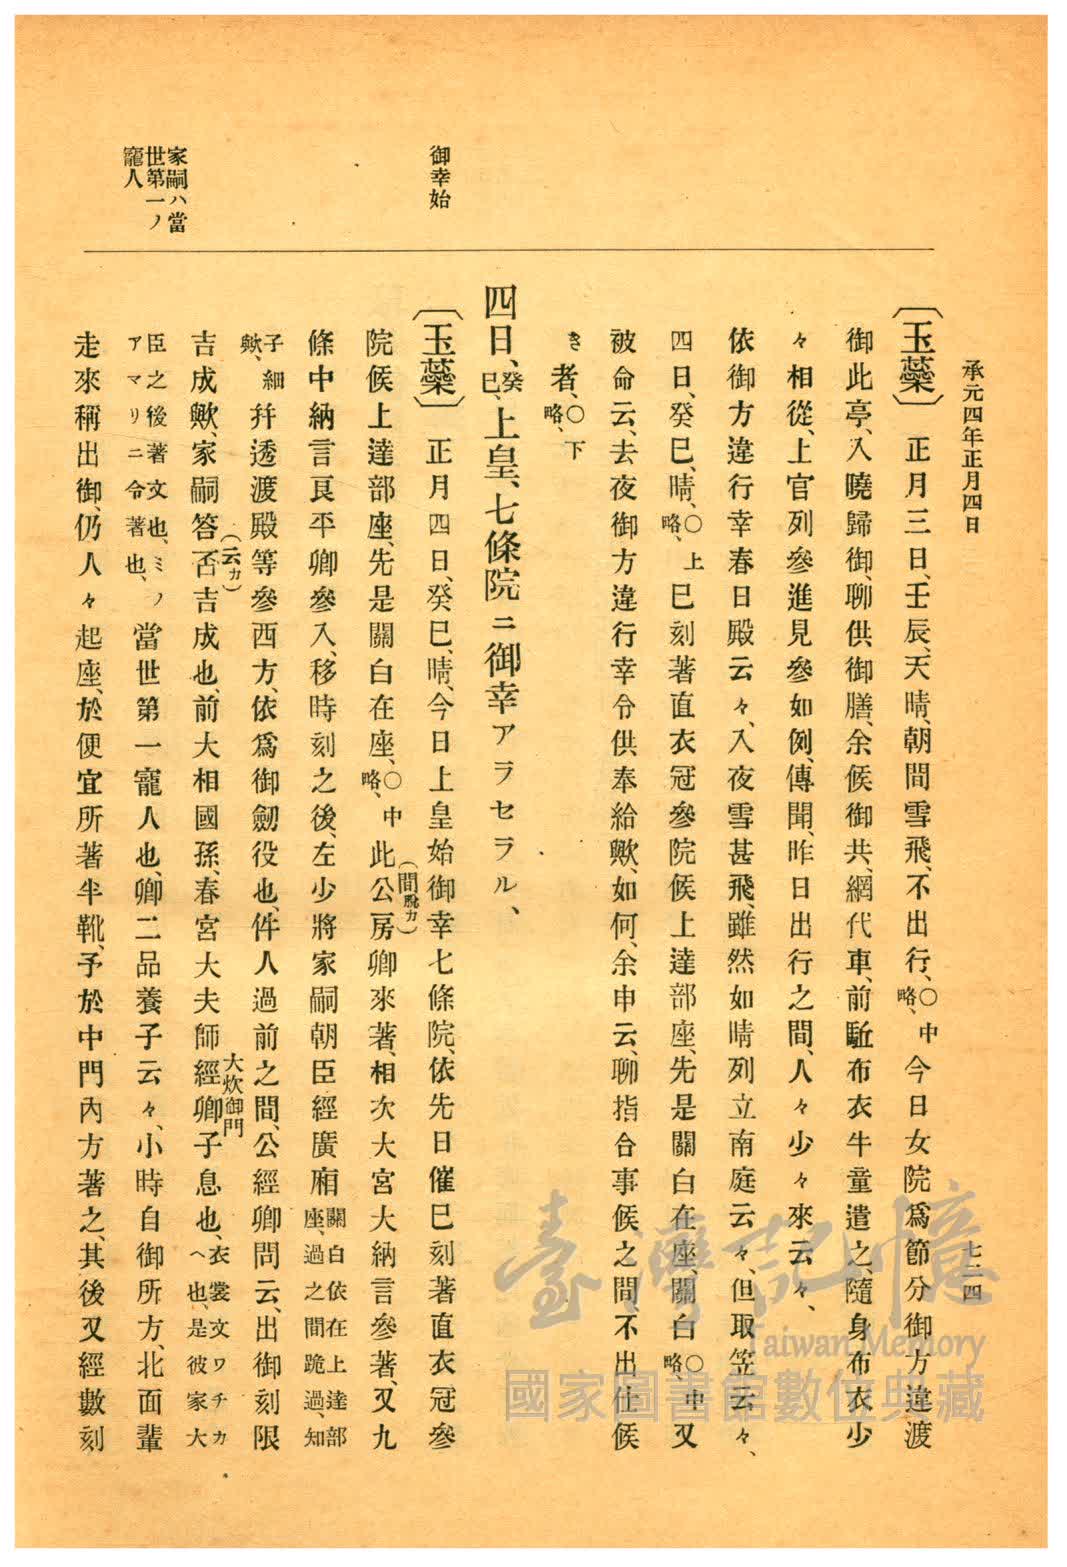 承元四年正月四日
七二四
〔玉蘂〕 正月三日、壬辰、天晴、朝間雪飛、不出行、〇中略、今日女院爲節分御方違渡
御此亭、入曉歸御、聊供御膳、余候御共、網代車、前駈布衣牛童遣之、隨身布衣少
々相從、上官列參進見參如例、傳聞、昨日出行之間、人々少々來云々、
依御方違行幸春日殿云々、入夜雪甚飛、雖然如晴列立南庭云々、但取笠云々、
四日、癸巳、晴、〇上略、巳刻著直衣冠參院候上達部座、先是關白在座、關白〇中略、又
被命云、去夜御方違行幸令供奉給歟、如何、余申云、聊指合事候之間、不出仕候
き者、〇下略、
御幸始
四日、癸巳、上皇、七條院ニ御幸アラセラル、
〔玉蘂〕 正月四日、癸巳、晴、今日上皇始御幸七條院、依先日催巳刻著直衣冠參
院候上達部座、先是關白在座、〇中略、此(間脫カ)公房卿來著、相次大宮大納言參著、又九
條中納言良平卿參入、移時刻之後、左少將家嗣朝臣經廣廂關白依在上達部座、過之間跪過、知
子細歟、幷透渡殿等參西方、依爲御劒役也、件人過前之間、公經卿問云、出御刻限
吉成歟、家嗣答否(云カ)吉成也、前大相國孫、春宮大夫師經卿大炊御門子息也、衣裳文ワチカヘ也、是彼家大
臣之後著文也、ミノアマリニ令著也、當世第一寵人也、卿二品養子云々、小時自御所方、北面輩
家嗣ハ當
世第一ノ
寵人
走來稱出御、仍人々起座、於便宜所著半靴、予於中門內方著之、其後又經數刻
臺灣記憶
Taiwan Memory
國家圖書館數位典藏